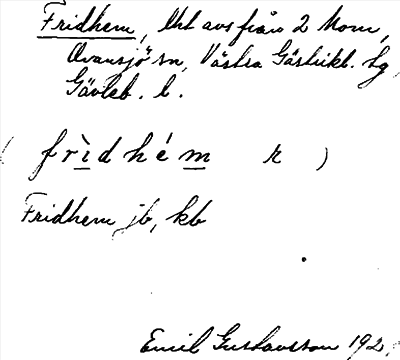 Fridhem, Uht avs från 2 Mom,
Ovansjö sn, Västra Gästrikl. hg,
Gävleb. l.
( frìdhém R )
Fridhem jb, kb
Emil Gustavsson 192